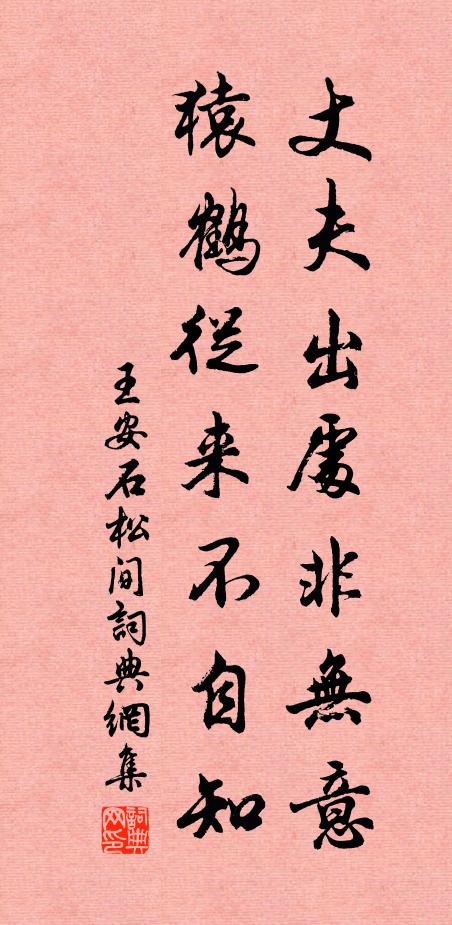 丈夫出處非無意
猿鶴從来不自知
王安石松间詞典網集
詞典网印